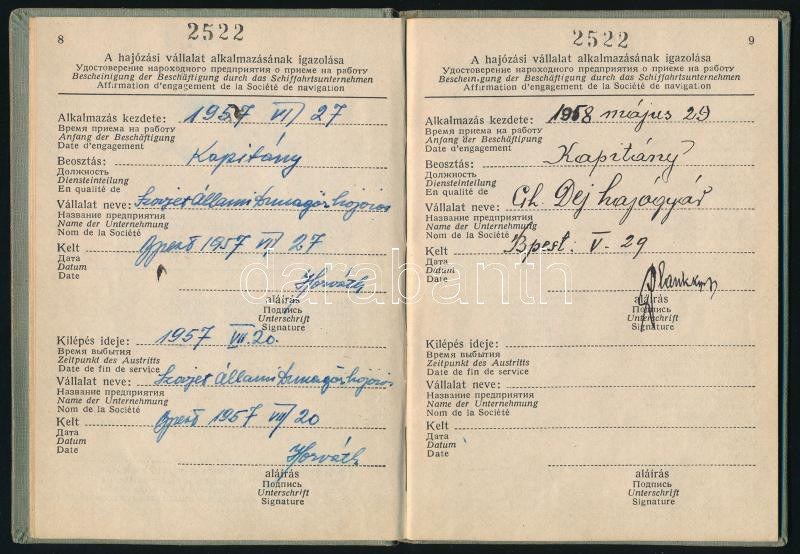 8
2522
A hajózási vállalat alkalmazásának igazolása
Удостоверение нароходного предприятия о приеме на работу
Bescheinigung der Beschäftigung durch das Schiffahrtsunternehmen
Affirmation d'engagement de la Société de navigation
Alkalmazás kezdete: 1957 VI/ 27
Время приема на работу
Anfang der Beschäftigung
Date d'engagement
Beosztás: Kapitány
Должность
Diensteinteilung
En qualité de
Vállalat neve: Szovjet Állami Dunagőzhajózás
Название предприятия
Name der Unternehmung
Nom de la Société
Kelt Bpest 1957 VI/ 27
Дата
Datum
Date
Horváth
aláírás
Подпись
Unterschrift
Signature
Kilépés ideje: 1957 VIII 20.
Время выбытия
Zeitpunkt des Austritts
Date de fin de service
Vállalat neve: Szovjet Állami Dunagőzhajózás
Название предприятия
Name der Unternehmung
Nom de la Société
Kelt Bpest 1957 VIII/ 20
Дата
Datum
Date
Horváth
aláírás
Подпись
Unterschrift
Signature
2522
9
A hajózási vállalat alkalmazásának igazolása
Удостоверение нароходного предприятия о приеме на работу
Bescheinigung der Beschäftigung durch das Schiffahrtsunternehmen
Affirmation d'engagement de la Société de navigation
Alkalmazás kezdete: 1958 május 29
Время приема на работу
Anfang der Beschäftigung
Date d'engagement
Beosztás: Kapitány
Должность
Diensteinteilung
En qualité de
Vállalat neve: Gh. Dej hajógyár
Название предприятия
Name der Unternehmung
Nom de la Société
Kelt Bpest. V. 29
Дата
Datum
Date
aláírás
Подпись
Unterschrift
Signature
Kilépés ideje:
Время выбытия
Zeitpunkt des Austritts
Date de fin de service
Vállalat neve:
Название предприятия
Name der Unternehmung
Nom de la Société
Kelt
Дата
Datum
Date
aláírás
Подпись
Unterschrift
Signature
darabanth